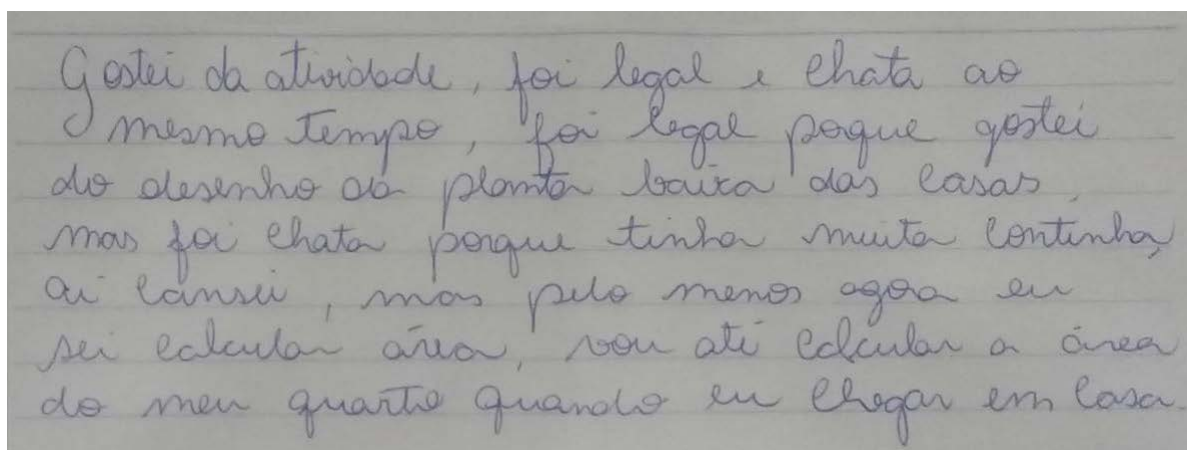 Gostei da atividade, foi legal e chata ao
mesmo tempo, foi legal poque gostei
do desenho da planta baixa das casas,
mas foi chata porque tinha muita continha,
ai cansei, mas pelo menos agora eu
sei calcular área, vou até calcular a área
do meu quarto quando eu chegar em casa.